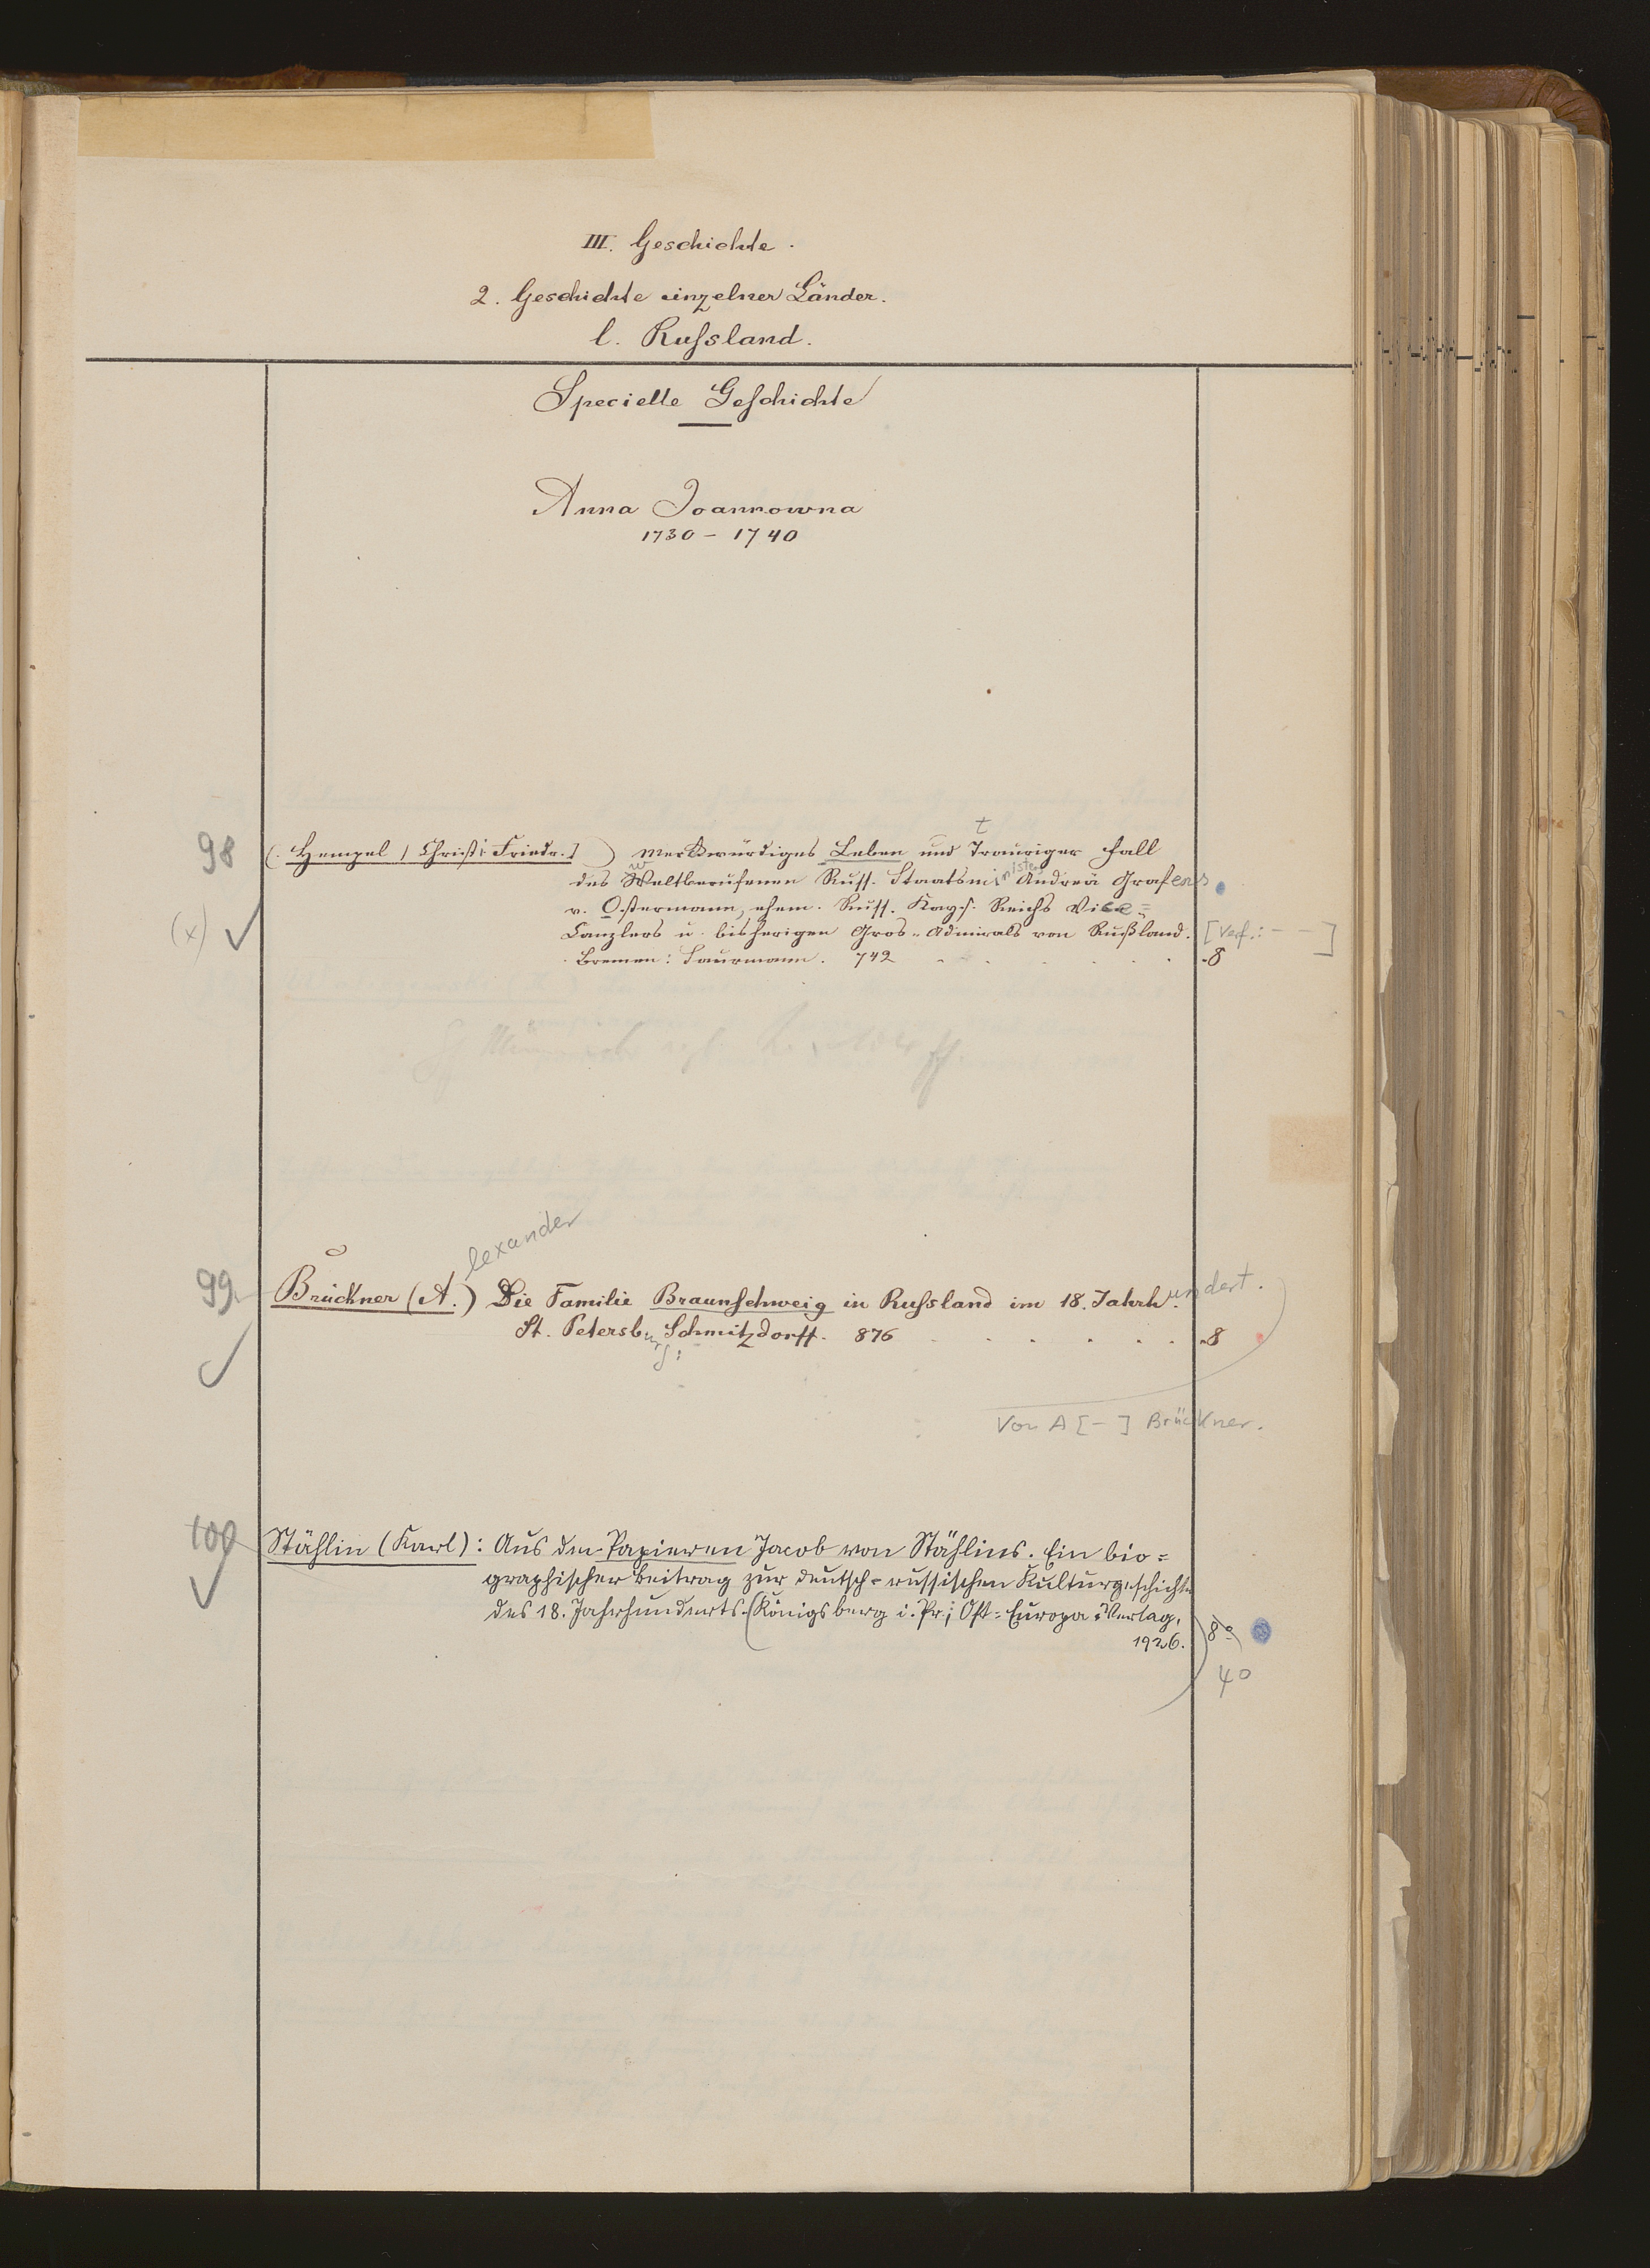 III. Geschichte.
2. Geschichte einzelner Länder.
l. Russland.
Specielle Geschichte
Anna Joannowna
1730 - 1740
98 (Hempel, Christ. Friedr.]) Merkwürdiges Leben und Trauriger Fall
t
des Weltberufenen Russ. Staatsminister Andreä Grafens
w
v. Ostermann, ehem. Russ. Kays. Reichs Vice=
(x) Canzlers u. bisherigen Gros-Admirals von Rußland. [Verf.: - - ]
Bremen: Saurmann. 742 . . . . . 8
99 Brückner (A.) Die Familie Braunschweig in Russland im 18. Jahrhundert.
lexander
St. Petersburg: Schmitzdorff. 876 . . . . . . 8
Von A[-] Brückner.
100 Stählin (Karl): Aus den Papieren Jacob von Stählins. Ein bio=
graphischer Beitrag zur deutsch-russischen Kulturgeschichte
des 18. Jahrhunderts. (Königsberg i. Pr.; Ost=Europa=Verlag,
1926.) 8°
4°